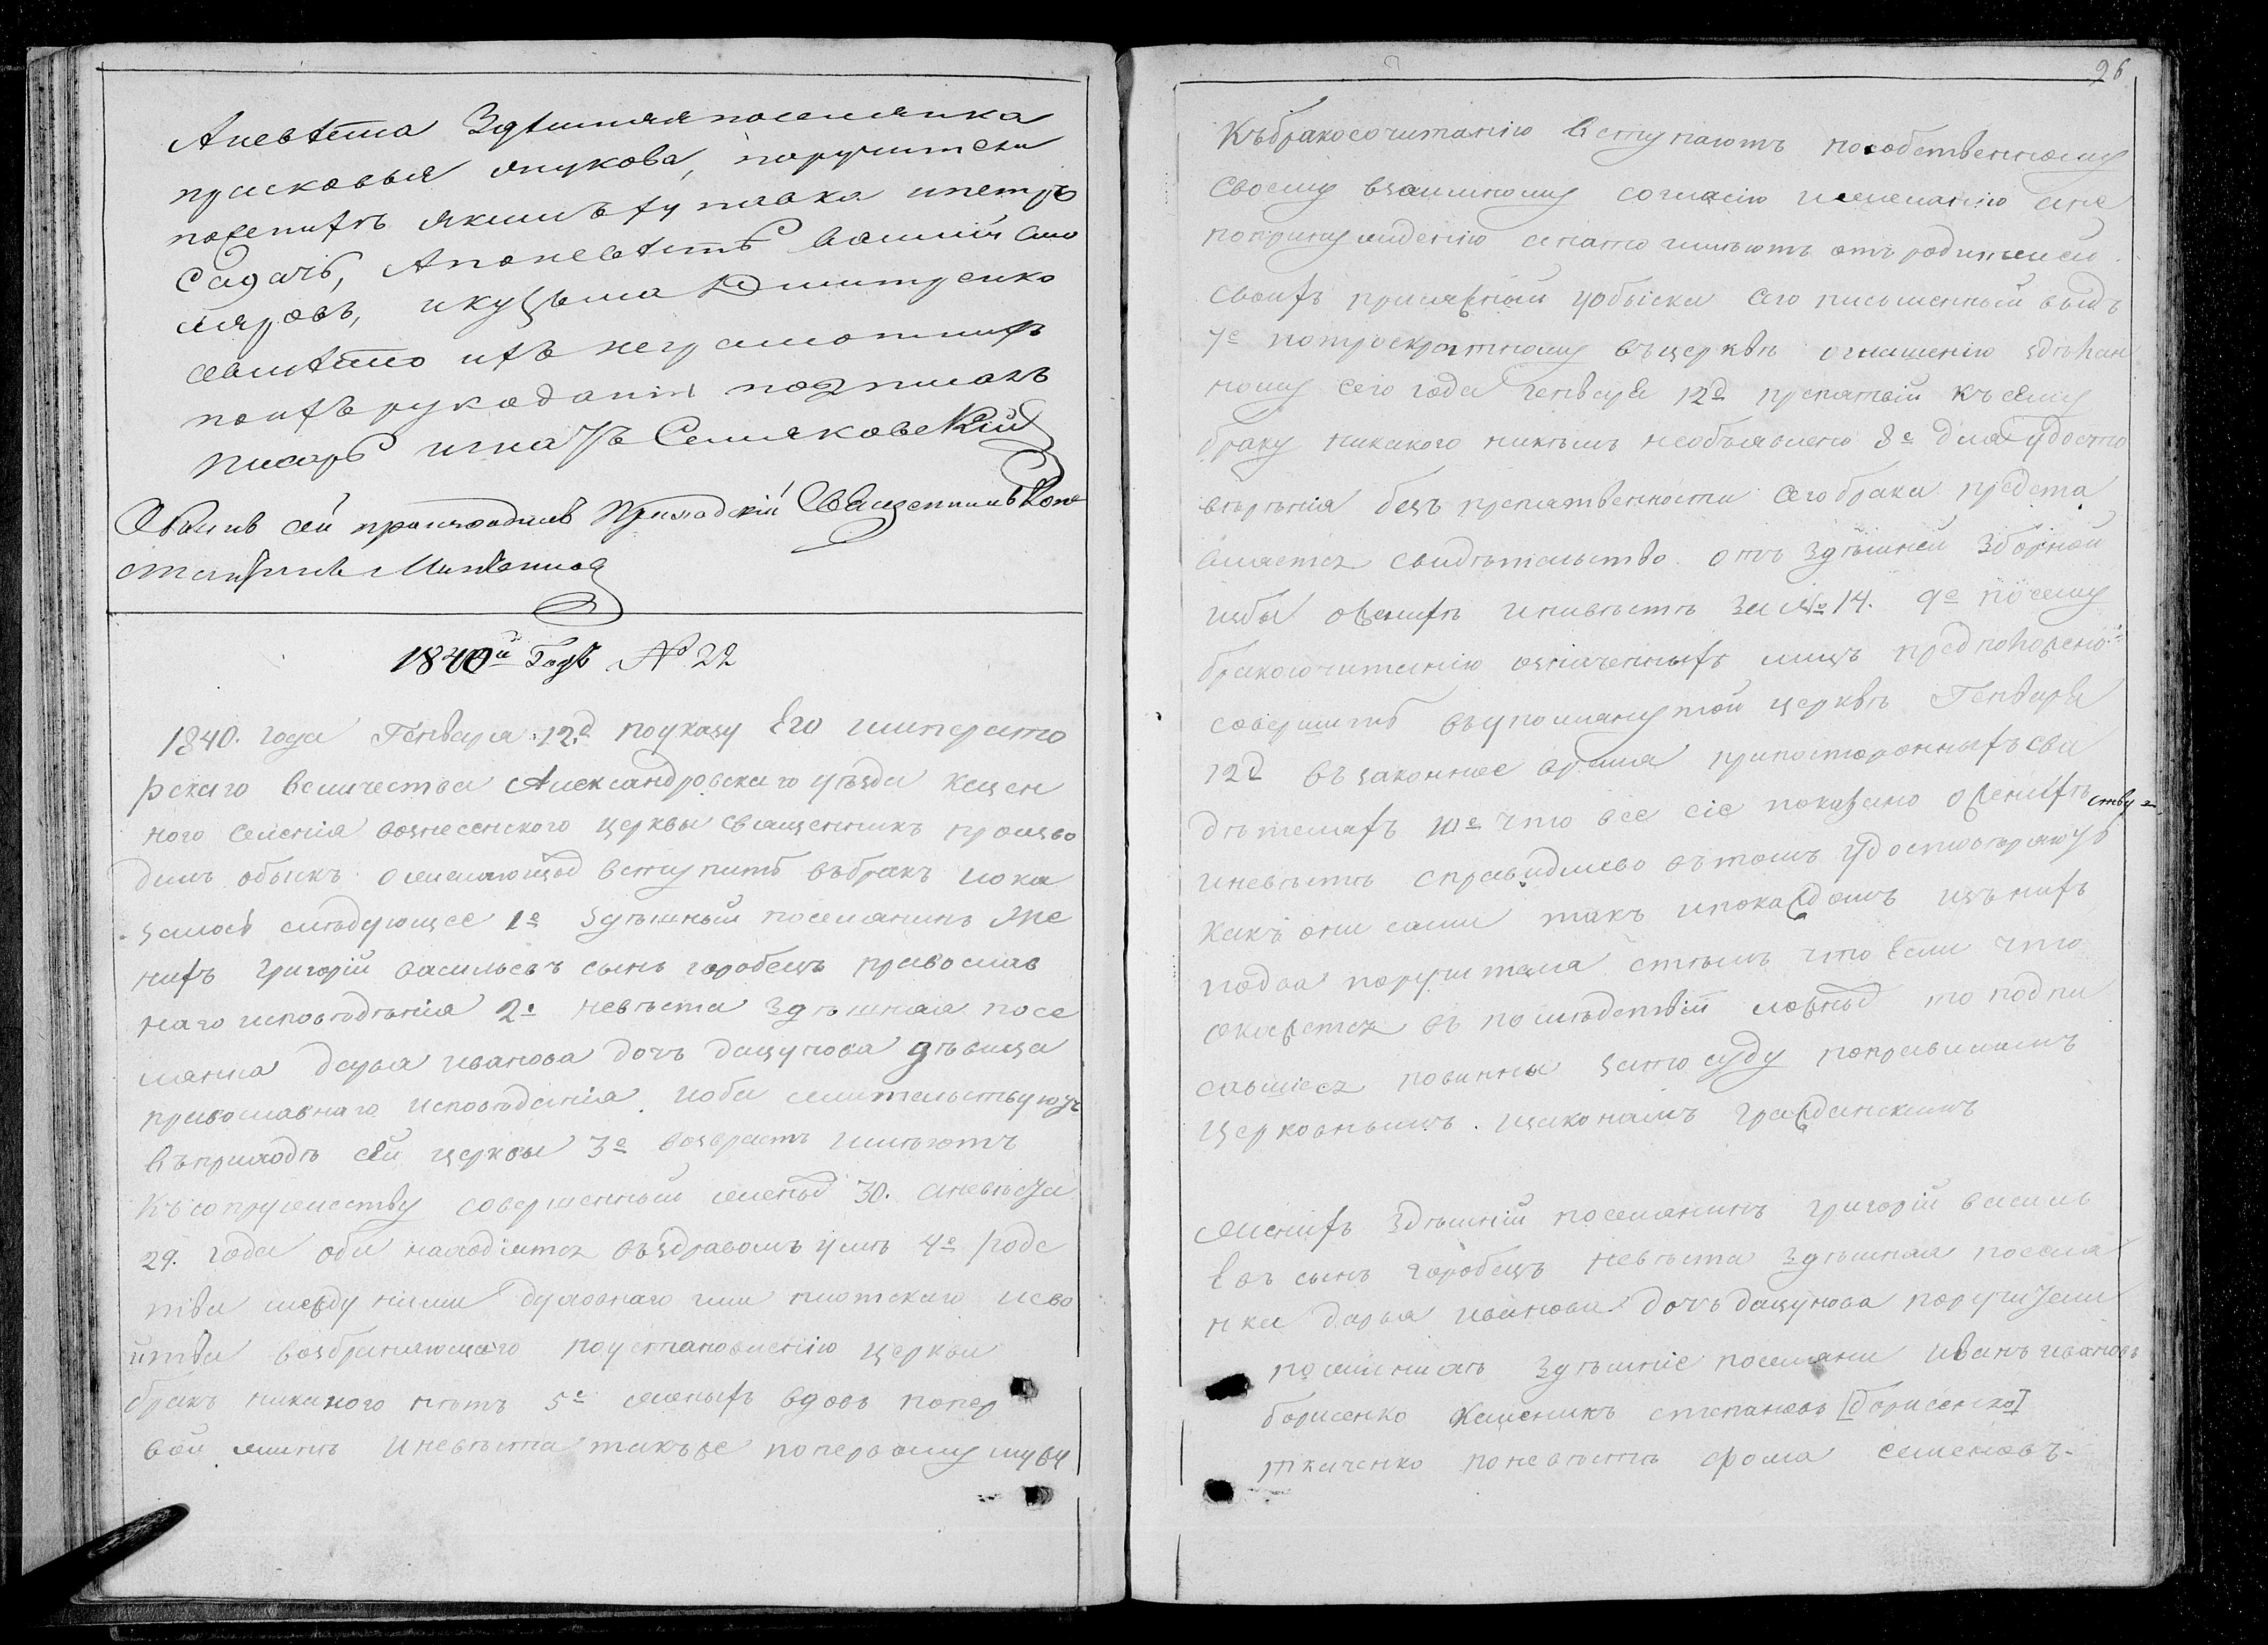 Аневѣста Здѣшняя поселянка
прасковья янукова, поручители
поженихѣ якимъ путавка ипетръ
Садачь, Апоневѣстѣ Василий Сто
ляровъ, икузьма Дмитренко
авмѣсто ихъ неграмотныхъ
поихъ рукоданiи подписалъ
писарь игнатъ Семяковскiй
Обыскъ сей производилъ Приходскiй Священникъ Кон
стантинъ
1840й Годъ № 22
1840. года Генваря 12д поуказу Его императо
рскаго величества Александровскаго уѣзда казен
ного селенiя вознесенского церквы священникъ произво
дилъ обыскъ ожелающихъ вступить въбракъ ипока
залось слѣдующее 1е здѣшный поселянинъ Же
нихъ григорiй васильевъ сынъ горобецъ православ
наго исповѣданiя 2. невѣста Здѣшная посе
лянка дарья иванова дочь дацунова дѣвица
православнаго исповѣданiя. иоба жительствуютъ
въприходѣ сей церквы 3е возврастъ имѣютъ
къ сопружеству совершенный женихъ 30. аневѣста
29. года оба находятся въздравомъ умѣ 4е родс
тва между ними духовнаго или плотскаго исво
йтва возбраняющаго поустановленiю церкви
бракъ никакого нѣтъ 5е женихъ вдовъ попер
вой женѣ иневѣста такъже попервому мужу
96
Къбракосочитанiю вступаютъ пособственному
своему взаимному согласiю ижеланiю ане
попринуждению анато имѣютъ отъ родителей
своихъ письменный видъ
7е потроекратному въцерквѣ оглашенiю здѣлан
ному сего года генваря 12д препятвiй къ сему
браку никакого никѣмъ необъявлено 8е для удосто
вѣрѣнiя безъ препятвенности сего брака предста
вляется свидѣтельство отъ здѣшней Зборной
избы оженихѣ иневѣстѣ за № 14. 9е почему
бракосочитанiю означенныхъ лицъ предположено
совершить въупомянутой церквѣ Генваря
12д въ законное время припостороннихъ сви
дѣтеляхъ 10е что все сiе показано оженихѣ
иневѣстѣ справидливо вътомъ удостовѣряютъ
какъ они сами такъ ипокаждомъ изъ нихъ
подва поручителя стѣмъ что если что
окажется въ послѣдствiи ложнымъ то подпи
савшiеся повинны зато суду поправиламъ
церковнымъ. изаконамъ гражданскимъ
женихъ здѣшнiй поселянинъ григорiй василь
евъ сынъ горобецъ невѣста здѣшная поселя
нка дарья иванова дочь дацунова поручители
поженихѣ здѣшнiе поселяни иванъ ивановъ
борисенко степановъ [борисенко]
ткаченко поневѣстѣ фома семеновъ